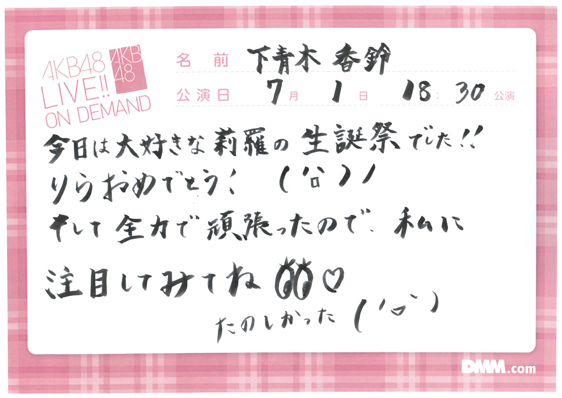 AKB48
LIVE!!
ON DEMAND
AKB
48
名前 下青木 香鈴
公演日 7月 1日 18:30公演
今日は大好きな莉羅の生誕祭でした!!
りらおめでとう! ('ロ')ノ
そして全力で頑張ったので、私に
注目してみてね ♡
たのしかった ('ロ')
DMM.com